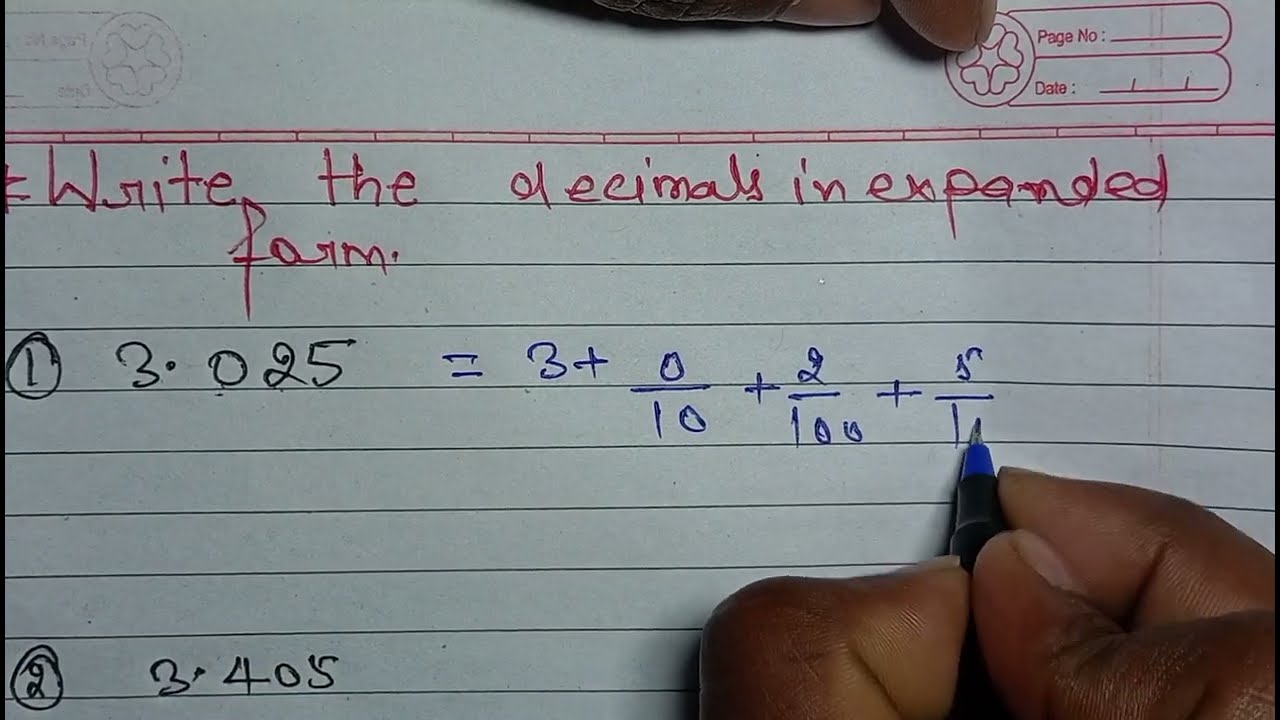 Page No :
Date :
* Write the decimals in expanded
form.
① 3.025 = 3 + 0/10 + 2/100 + 5/1
② 3.405